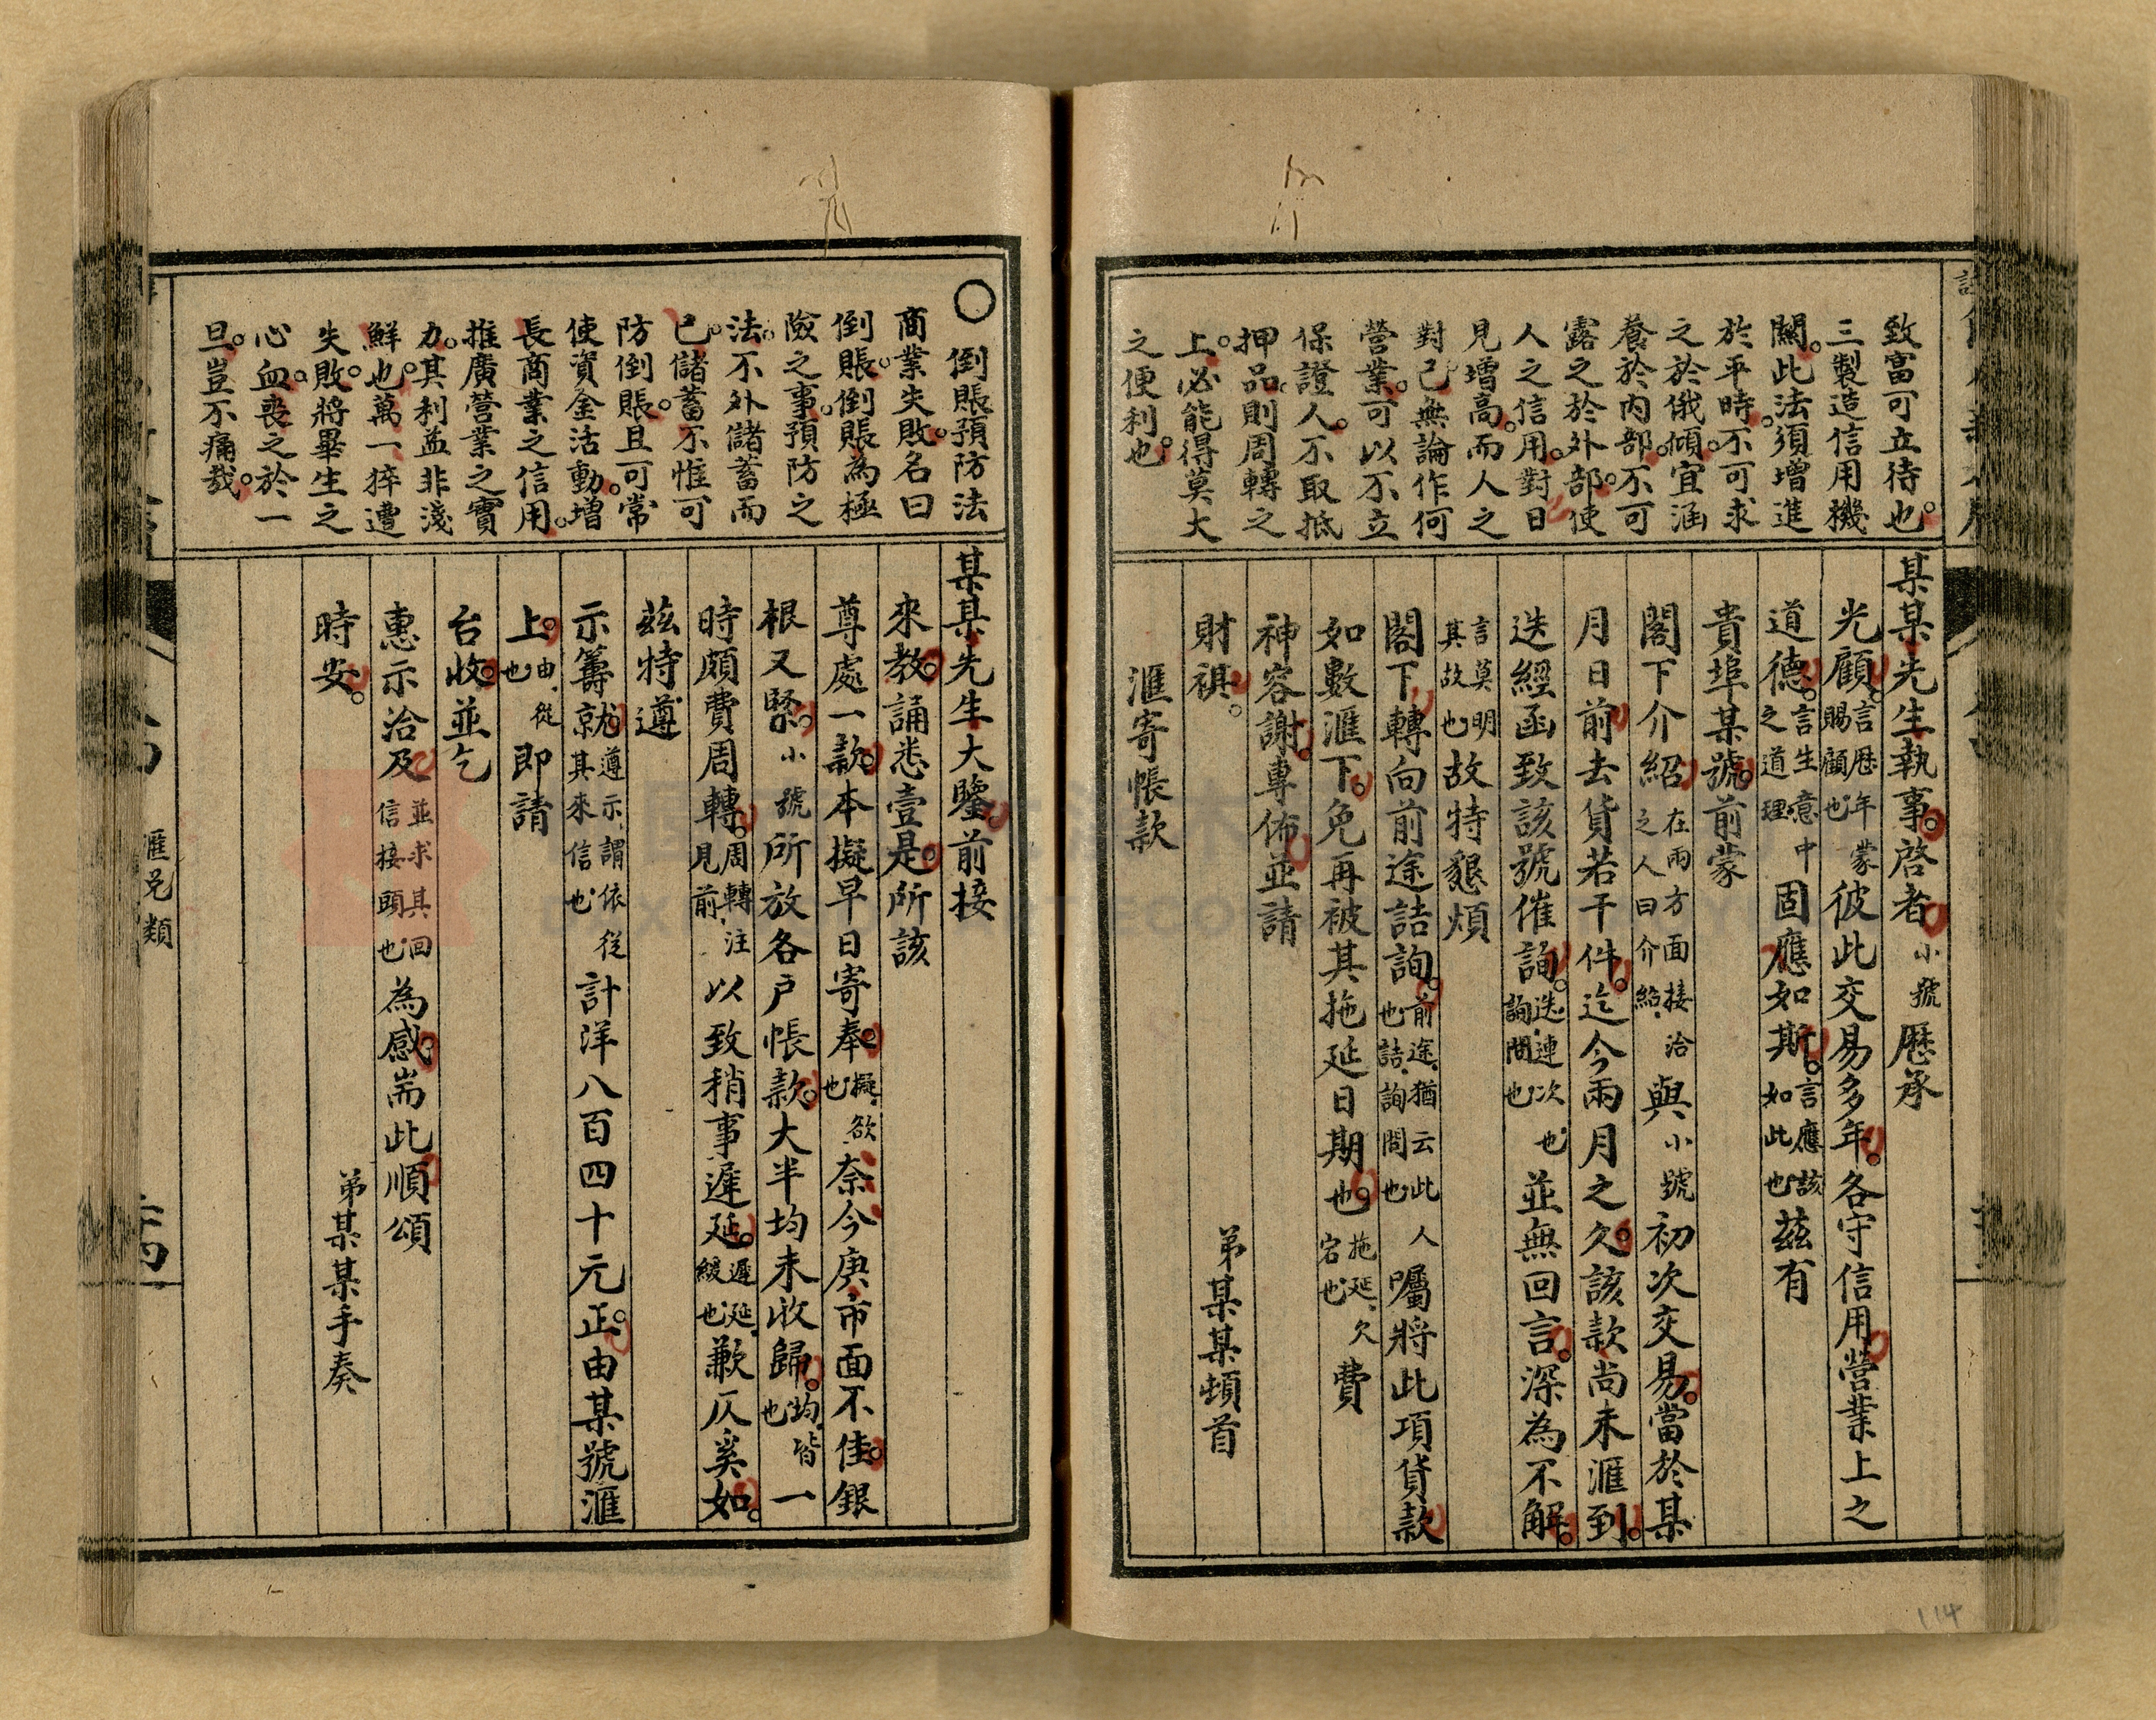 致富可立待也。
三製造信用機
關。此法須增進
於平時。不可求
之於俄頃。宜涵
養於內部。不可
露之於外部。使
人之信用。對日
見增高。而人之
對己無論作何
營業。可以不立
保證人。不取抵
押品。則周轉之
上。必能得莫大
之便利也。
某某先生執事。啓者小號歷承
光顧。言歷年蒙賜顧也彼此交易多年。各守信用營業上之
道德。言生意中之道理固應如斯。言應該如此也茲有
貴埠某號。前蒙
閣下介紹在兩方面接洽之人曰介紹與小號初次交易。當於某
月日前去貨若干件。迄今兩月之久。該款尚未滙到。
迭經函致該號催詢。迭連次也詢問也並無回言。深為不解。
言莫明其故也故特懇煩
閣下轉向前途詰詢。前途猶云此人也詰詢問也囑將此項貨款
如數滙下。免再被其拖延日期也。拖延欠宕也費
神容謝。專佈並請
財祺。
弟某某頓首
滙寄帳款
○倒賬預防法
商業失敗。名曰
倒賬。倒賬為極
險之事。預防之
法。不外儲蓄而
已。儲蓄不惟可
防倒賬。且可常
使資金活動。增
長商業之信用。
推廣營業之實
力。其利益非淺
鮮也。萬一猝遭
失敗。將畢生之
心血。喪之於一
旦。豈不痛哉。
某某先生大鑒。前接
來教。誦悉壹是。所該
尊處一款。本擬早日寄奉。擬欲也奈今庚市面不佳。銀
根又緊。小號所放各戶帳款。大半均未收歸。均皆也一
時頗費周轉。周轉注見前以致稍事遲延。遲延緩也歉仄奚如。
茲特遵
示籌就。遵示謂依從其來信也計洋八百四十元正。由某號滙
上。由從也即請
台收。並乞
惠示洽及並求其回信接頭也為感。耑此順頌
時安。
弟某某手奏
滙兌類